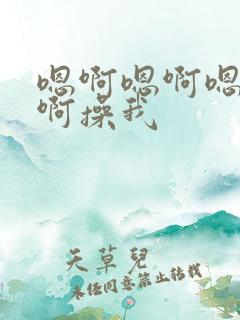 嗯啊嗯啊嗯
啊操我
天草兒
未任同意禁止转载